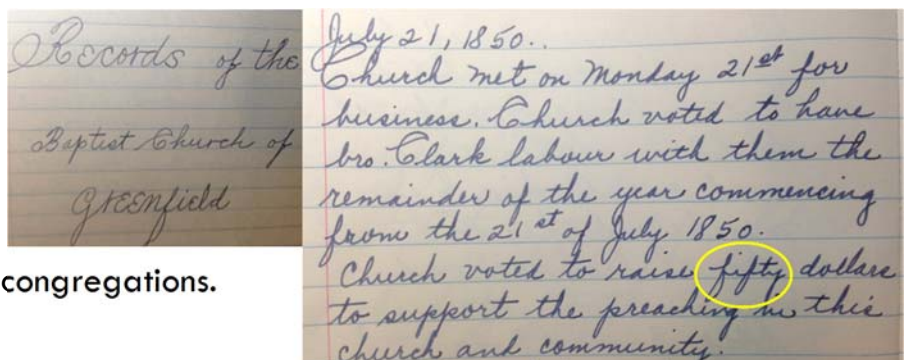 Records of the
Baptist Church of
Greenfield
congregations.
July 21, 1850..
Church met on Monday 21st for
business. Church voted to have
bro. Clark labour with them the
remainder of the year commencing
from the 21st of July 1850.
Church voted to raise fifty dollars
to support the preaching in this
church and community.